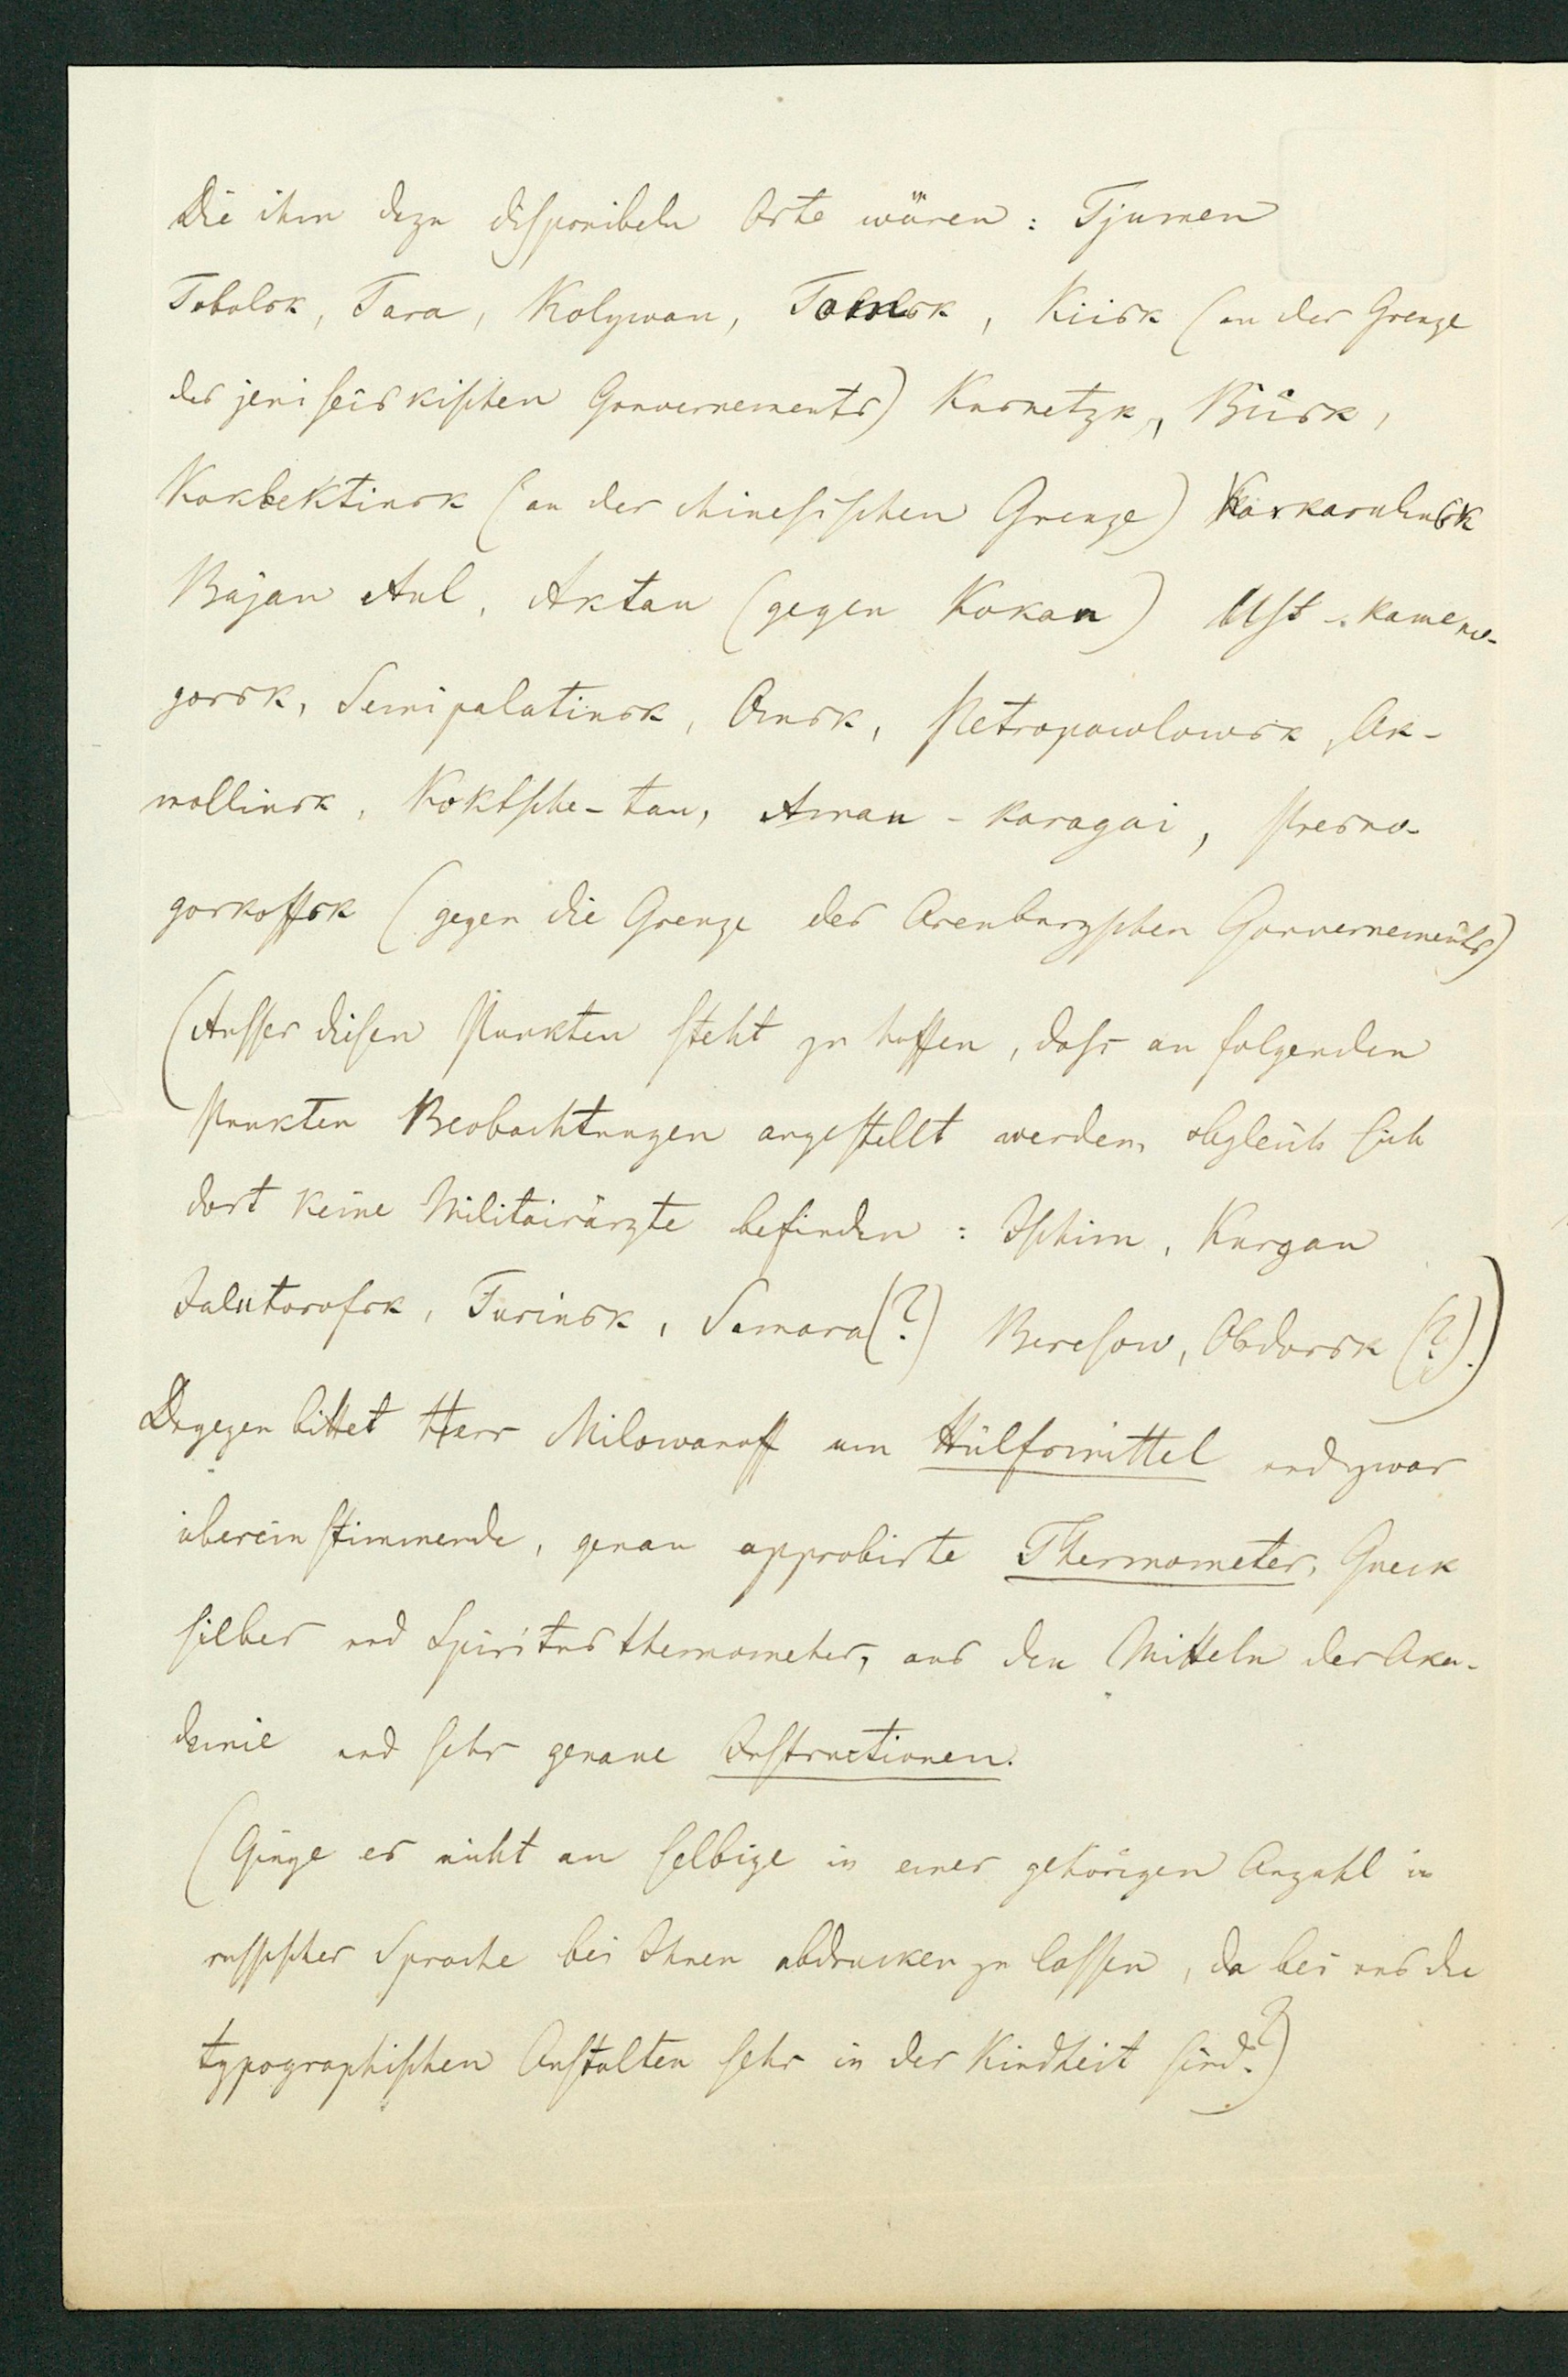 Die ihm dazu disponibeln Orte wären: Tjumen
Tobolsk, Tara, Kolywan, Tomsk, Kiisk (an der Grenze
des jeniseiskischen Gouvernements) Kusnetzk, Biisk,
Kokbektinsk (an der chinesischen Grenze) Karkaralinsk
Bajan Aul, Aktau (gegen Kokan) Ust-Kameno-
gorsk, Semipalatinsk, Omsk, Petropawlowsk, Ak-
mollinsk, Koktsche-tau, Aman-karagai, Presno-
gorkoffsk (gegen die Grenze des Orenburgschen Gouvernements)
(Ausser diesen Punkten steht zu hoffen, dass an folgenden
Punkten Beobachtungen angestellt werden, obgleich sich
dort keine Militairärzte befinden: Ischim, Kurgan
Jalutorofsk, Turinsk, Samara(?) Beresow, Obdorsk (?).)
Dagegen bittet Herr Milowanoff um Hülfsmittel und zwar
übereinstimmende, genau approbirte Thermometer, Queck
silber und Spiritusthermometer, aus den Mitteln der Aka-
demie und sehr genaue Instructionen.
(Ginge es nicht an selbige in einer gehörigen Anzahl in
russischer Sprache bei Ihnen abdrucken zu lassen, da bei uns die
typographischen Anstalten sehr in der Kindheit sind?)